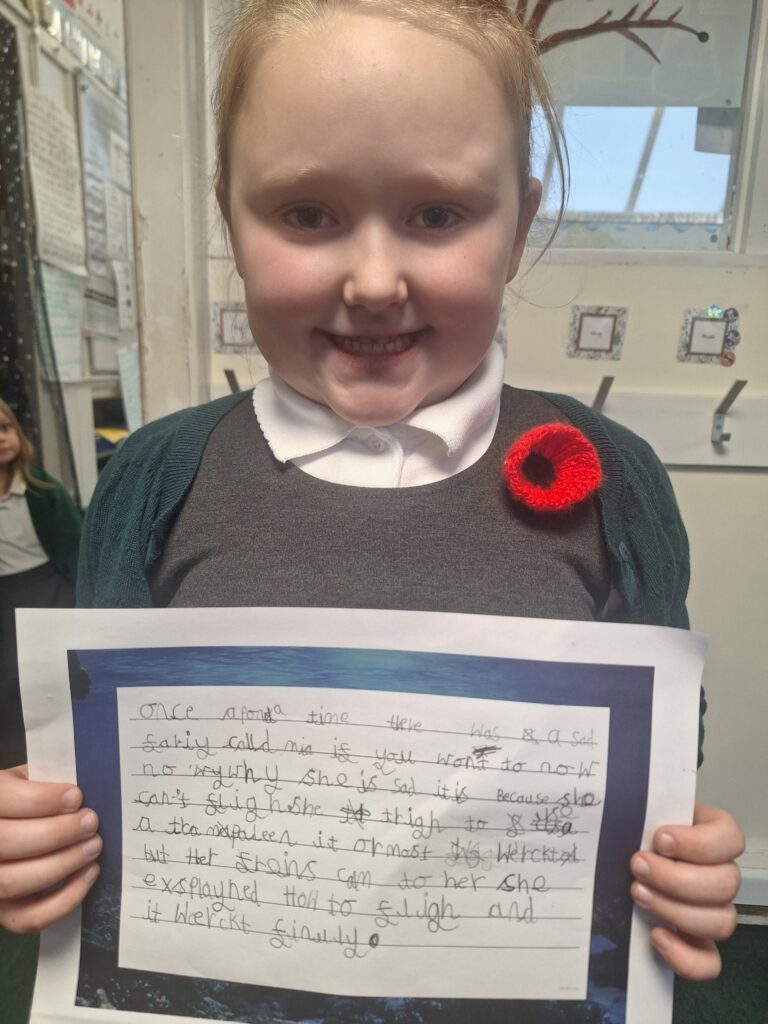 once apond a time there was a sad
fariy calld mia if you want to now
no why she is sad it is Because she
can't fligh. she trigh to use
a thamapaleen it ormost werckt
but Her freins cam to her she
exsplayned How to fligh and
it werckt finully.